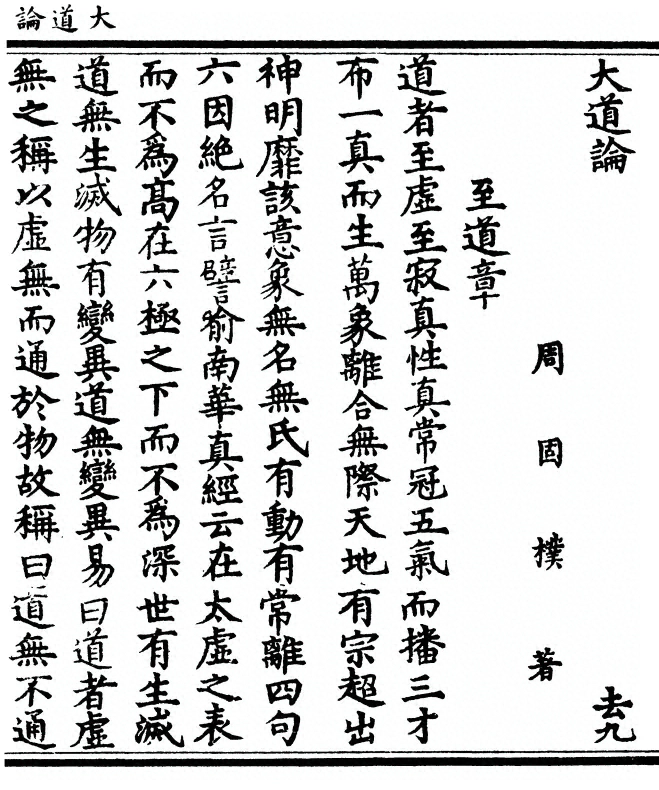 大道論
大道論 去九
周固樸著
至道章
道者至虛至寂真性真常冠五氣而播三才
布一真而生萬象離合無際天地有宗超出
神明靡該意象無名無氏有動有常離四句
六因絕名言譬喻南華真經云在太虛之表
而不為髙在六極之下而不為深世有生滅
道無生滅物有變異道無變異易曰道者虛
無之稱以虛無而通於物故稱曰道無不通